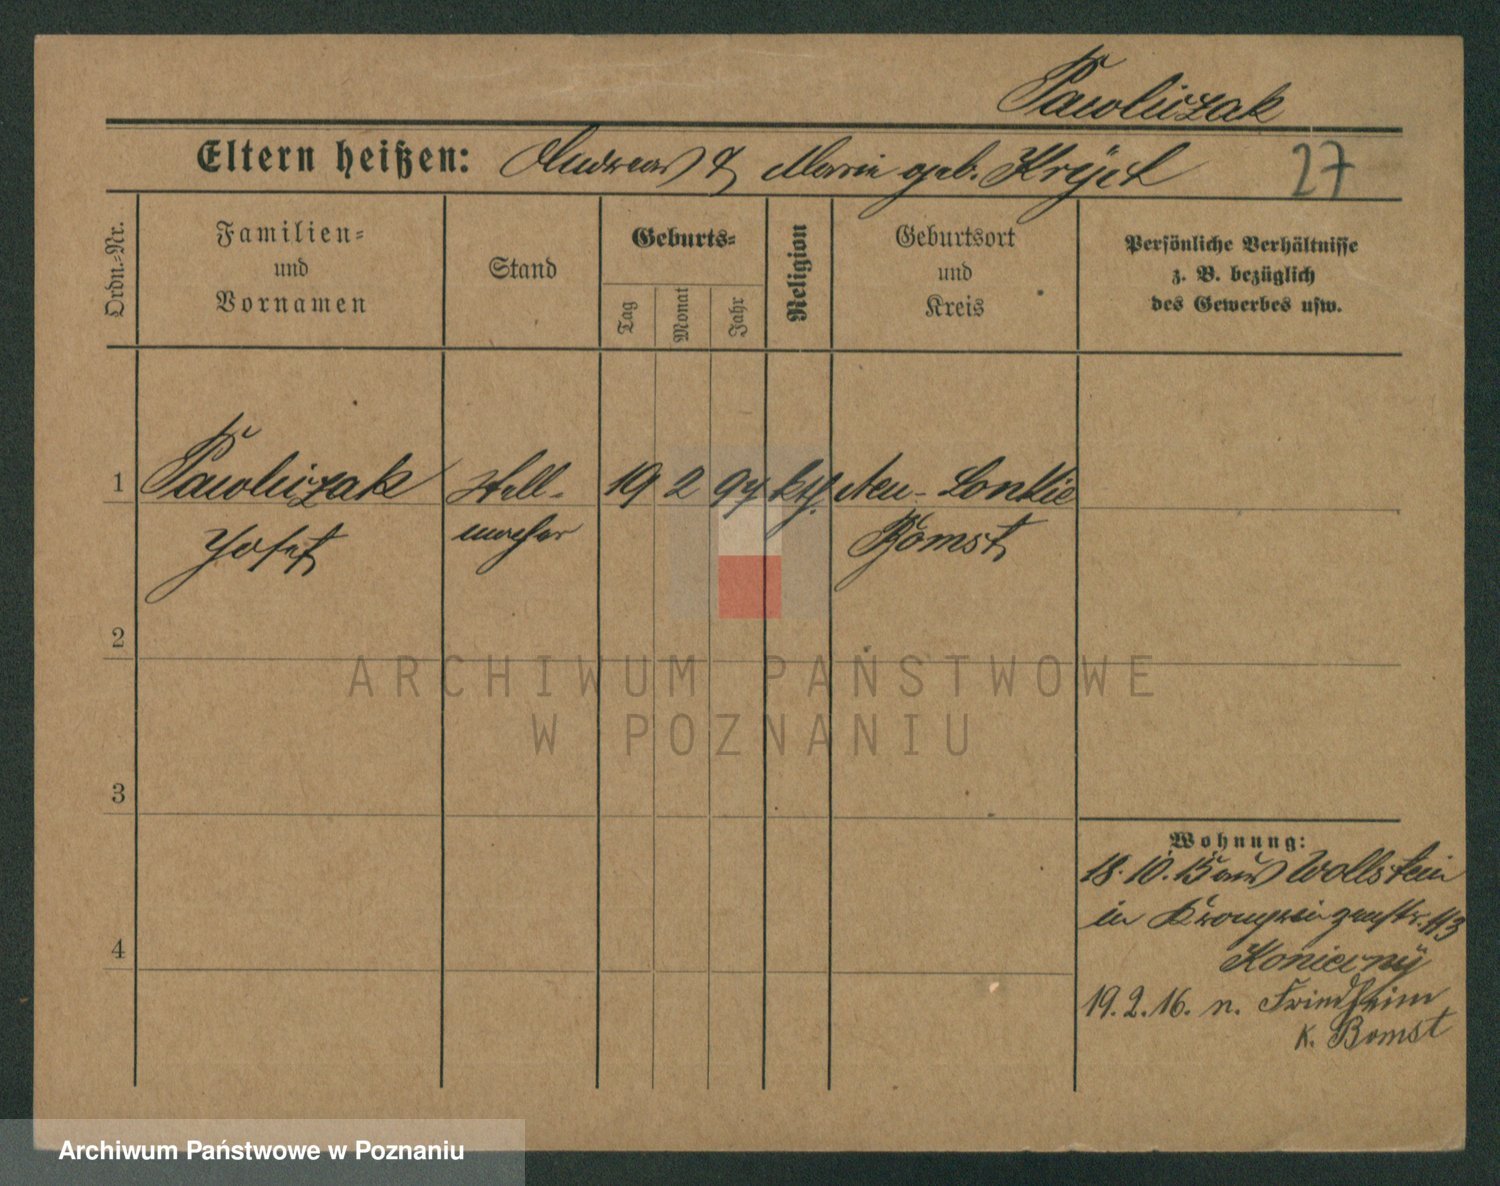 Pawliczak
Eltern heißen: Andreas & Marie geb.
27
Ordn.-Nr.
Familien-
und
Vornamen
Stand
Geburts-
Tag
Monat
Jahr
Religion
Geburtsort
und
Kreis
Persönliche Verhältnisse
z. B. bezüglich
des Gewerbes usw.
1 Pawliczak Stell- 19 2 94 kth. Neu-
Josef macher Bomst
2
3
4
Wohnung:
18. 10. 15 aus Wollstein
in Kronprinzenstr. 113
19. 2. 16. n. Friedheim
K. Bomst
ARCHIWUM PAŃSTWOWE
W POZNANIU
Archiwum Państwowe w Poznaniu